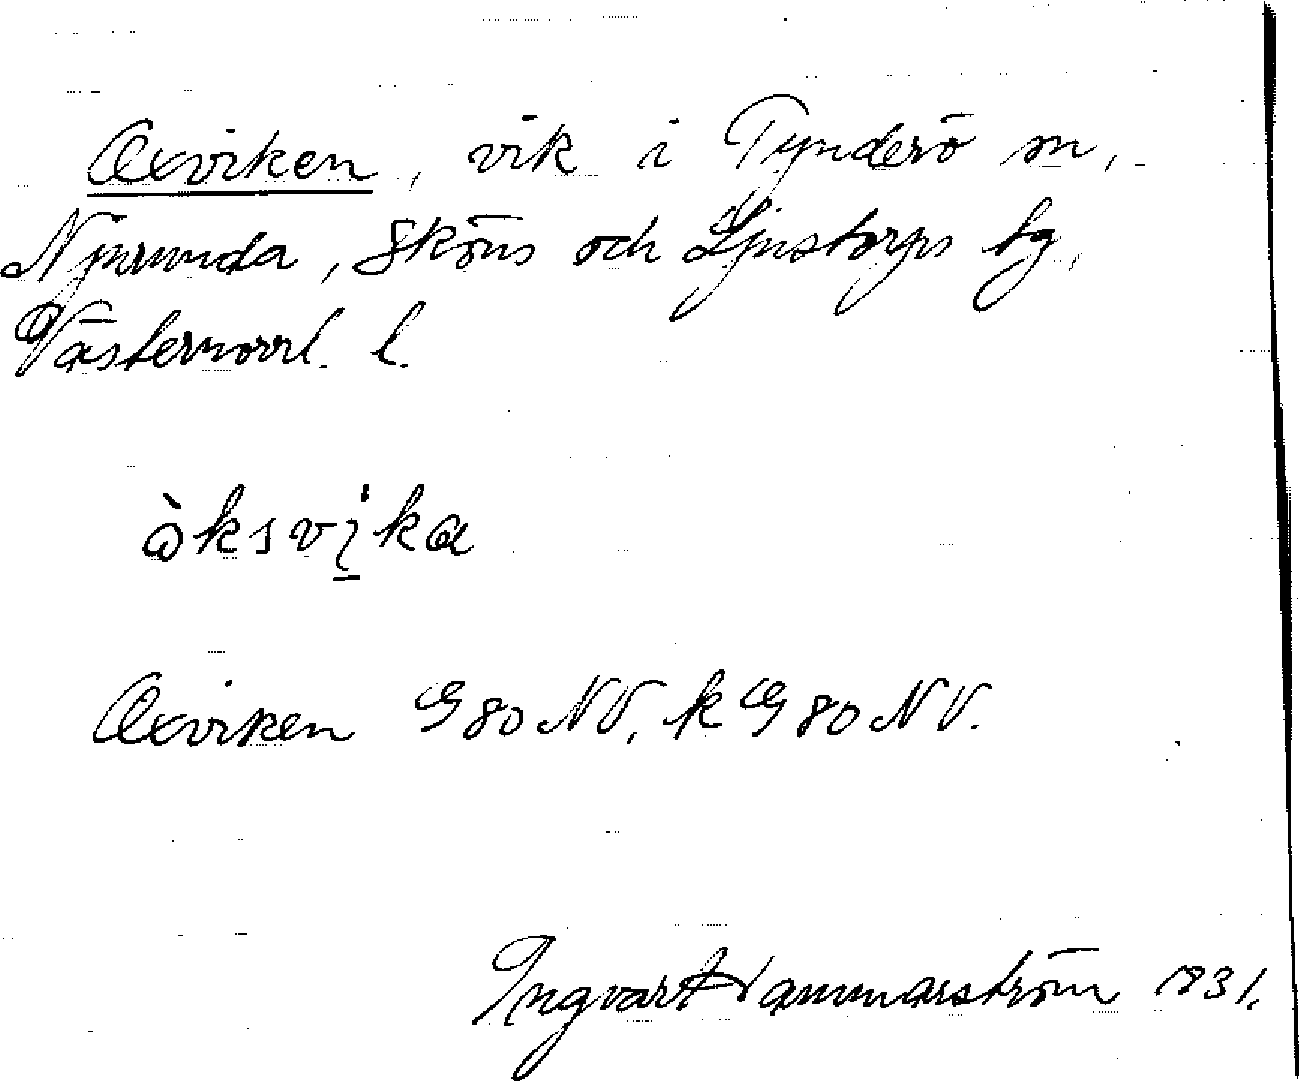 Oxviken, vik i Tynderö sn,
Njurunda, Sköns och Ljustorps tg,
Västernorrl. l.
òksvi̠ka
Oxviken G 80 NV, k G 80 NV.
Ingvar Hammarström 1931.